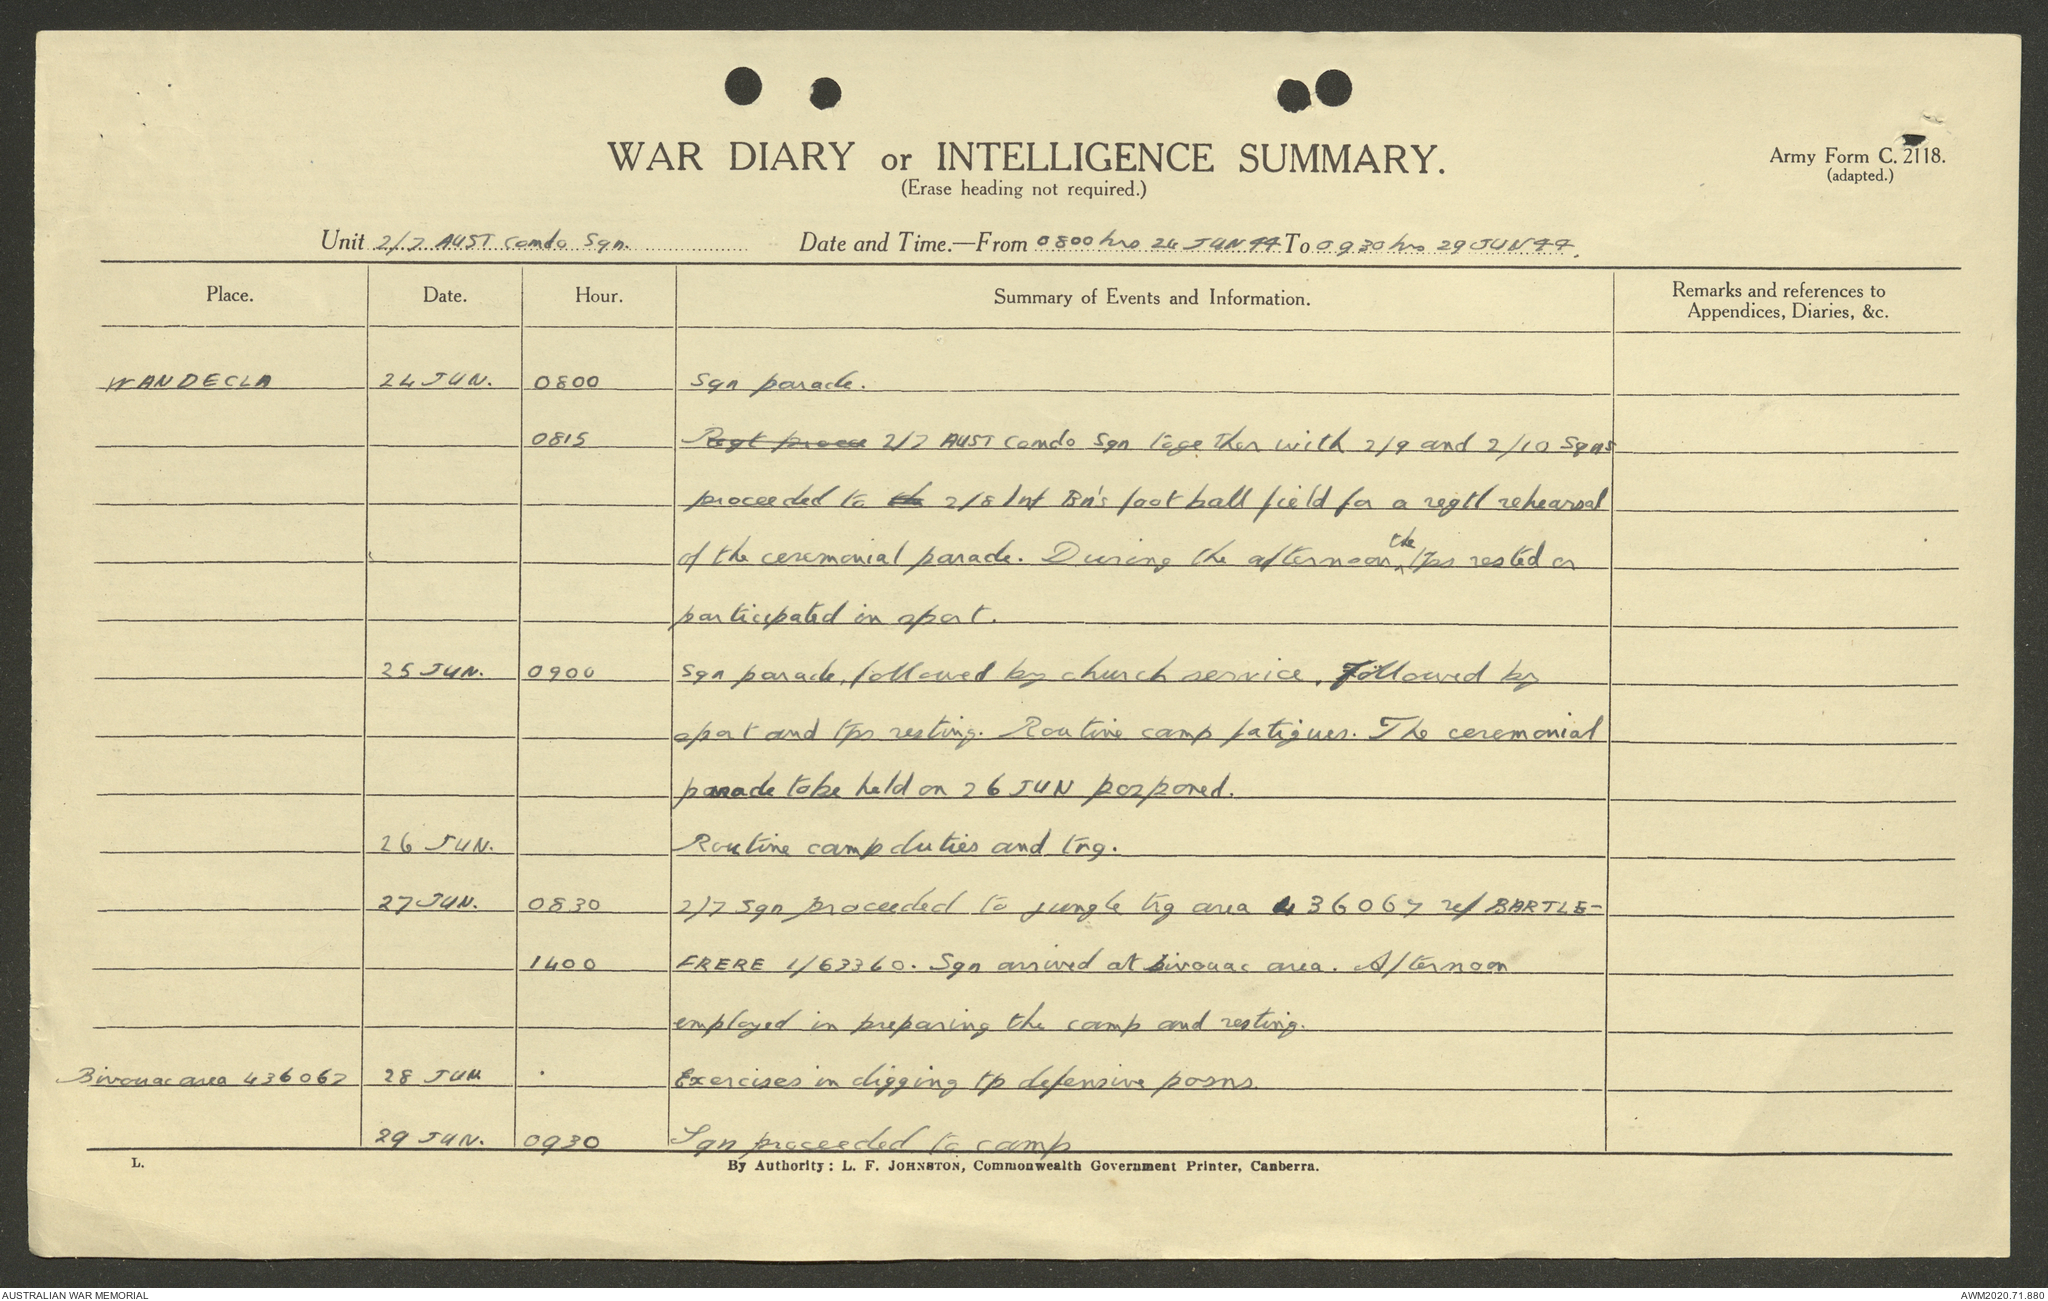 WAR DIARY or INTELLIGENCE SUMMARY.
(Erase heading not required.)
Army Form C. 2118.
(adapted.)
Unit 2/7 AUST Comdo Sqn. Date and Time.—From 0800 hrs 24 JUN 44 To 0930 hrs 29 JUN 44.
Place. Date. Hour. Summary of Events and Information. Remarks and references to
Appendices, Diaries, &c.
WANDECLA 24 JUN. 0800 Sqn parade.
0815 Regt procee 2/7 AUST Comdo Sqn together with 2/9 and 2/10 Sqns
proceeded to th 2/8 Inf Bn's foot ball field for a regtl rehearsal
of the ceremonial parade. During the afternoon the tps rested or
participated in sport.
25 JUN. 0900 Sqn parade, followed by church service. Followed by
sport and tps resting. Routine camp fatigues. The ceremonial
parade to be held on 26 JUN pozponed.
26 JUN. Routine camp duties and trg.
27 JUN. 0830 2/7 Sqn proceeded to jungle trg area 436067 ref BARTLE-
1400 FRERE 1/63360. Sqn arrived at bivouac area. Afternoon
employed in preparing the camp and resting.
Bivouac area 436067 28 JUN . Exercises in digging tp defensive posns.
29 JUN. 0930 Sqn proceeded to camp
L.
By Authority: L. F. JOHNSTON, Commonwealth Government Printer, Canberra.
AUSTRALIAN WAR MEMORIAL
AWM2020.71.880